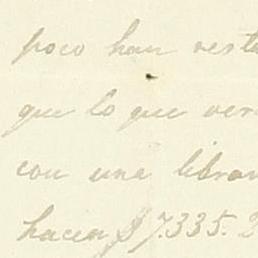 poco han resta
que lo que ver
con una libran
hacen $7.335.2